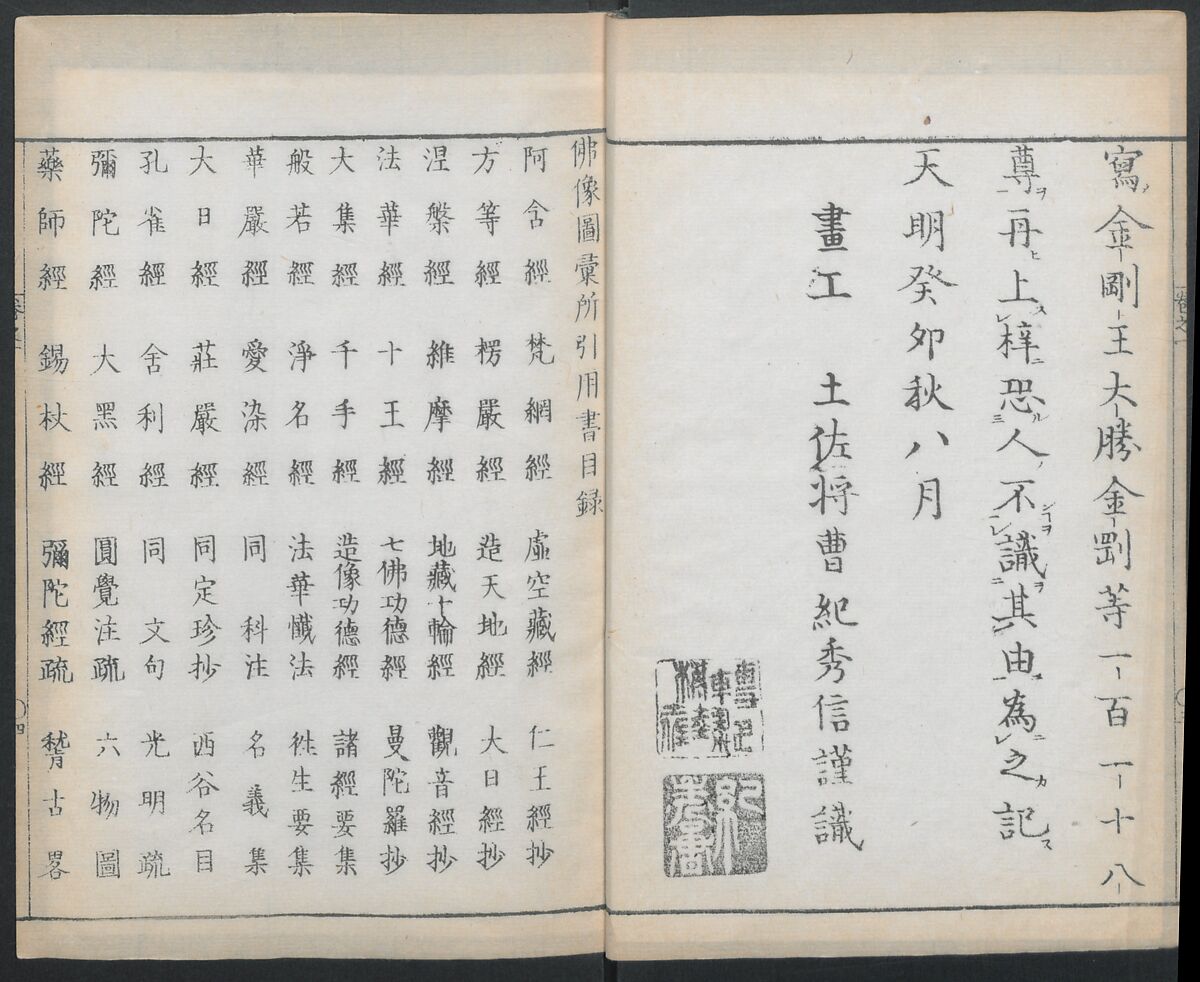 寫金剛王大勝金剛等一百一十八
尊再上梓恐人不識其由為之記
天明癸卯秋八月
畫工 土佐將曹紀秀信謹識
佛像圖彙所引用書目録
阿含經 梵網經 虛空藏經 仁王經抄
方等經 楞嚴經 造天地經 大日經抄
涅槃經 維摩經 地藏十輪經 觀音經抄
法華經 十王經 七佛功德經 曼陀羅抄
大集經 千手經 造像功德經 諸經要集
般若經 淨名經 法華懺法 徃生要集
華嚴經 愛染經 同科注 名義集
大日經 莊嚴經 同定珍抄 西谷名目
孔雀經 舍利經 同文句 光明疏
彌陀經 大黑經 圓覺注疏 六物圖
藥師經 錫杖經 彌陀經疏 稽古畧
卷之一
〇四